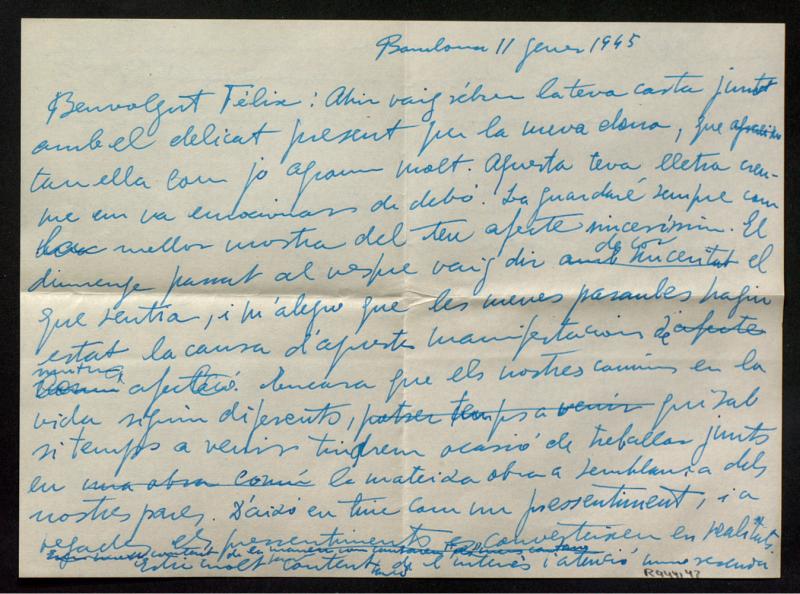 Barcelona 11 gener 1945
Benvolgut Fèlix: Ahir vaig rébrer la teva carta junt
amb el delicat present per la meva dona, que
tan ella com jo agraim molt. Aquesta teva lletra
me em va emocionar de debó. La guardaré sempre com
la mellor mostra del teu afecte sinceríssim. El
de cor
diumenge passat al vespre vaig dir amb sinceritat el
que sentia, i m'alegro que les meves paraules hagin
estat la causa d'aquestes manifestacions d'afecte
mutua
afectació. Encara que els nostres camins en la
vida siguin diferents, potser temps a venir quizab
si temps a venir tindrem ocasió de treballar junts
en una obra comú la mateixa obra a semblança dels
nostres pares. D'aixó en tinc com un pressentiment, i a
vegades els pressentiments es converteixen en realitats.
Estic molt content de l'interés i atenció
R.944.147